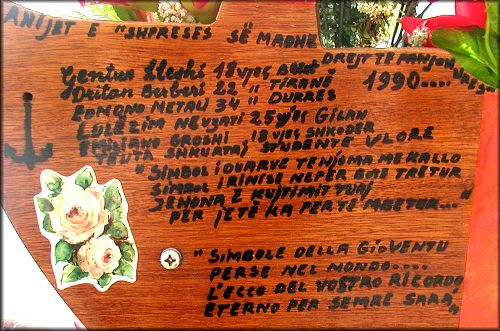 ANIJET E "SHPRESES SË MADHE
DREJT TE PANJOHURES
Gentius Lleshi 18 vjeç BERAT 1990....
Dritan Berberi 22 " TIRANË
EDMOND METALI 34 " DURRES
LULEZIM NEVZATI 25 vjeç GILAN
EMILIANO GROSHI 18 vjeç SHKODER
TEUTA SHKURTAJ STUDENTE VLORE
"SIMBOL I DUARVE TE NJOMA ME KALLO
SIMBOL I RINISE NEPER BOTE TRETUR
JEHONA E KUJTIMIT TUAJ
PER JETE KA PER TË MBETUR..."
"SIMBOLE DELLA GIOVENTU
PERSE NEL MONDO....
L'ECCO DEL VOSTRO RICORDO
ETERNO PER SEMRE SARA"